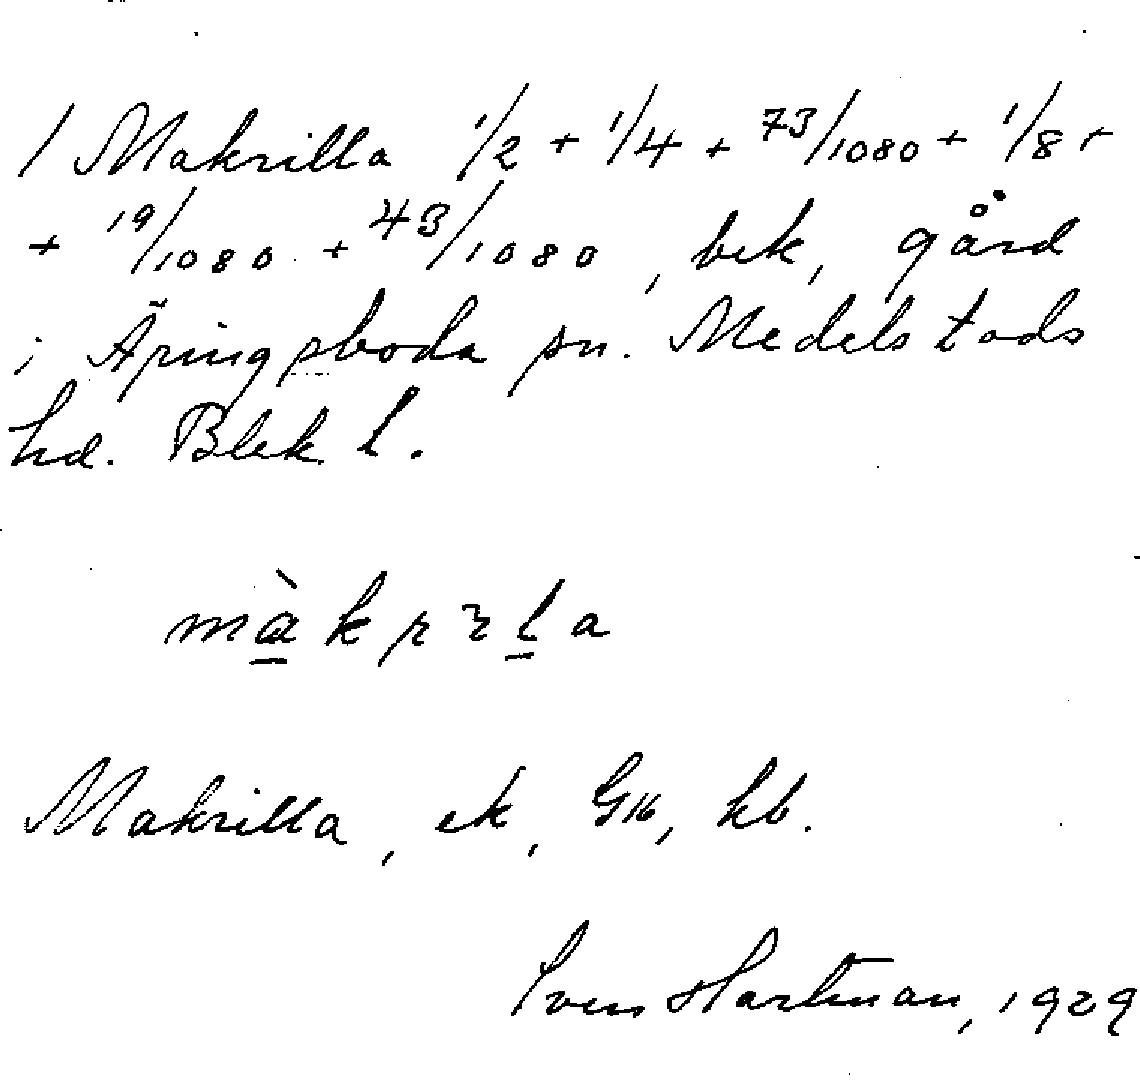 1 Makrilla 1/2 + 1/4 + 73/1080 + 1/8 +
+ 19/1080 + 43/1080, bek, gård
i Äringsboda sn. Medelstads
hd. Blek l.
màkrɩla
Makrilla, ek, Gk, kb.
Sven Hartman, 1929